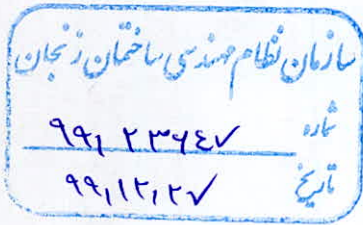 سازمان نظام مهندسی ساختمان زنجان
شماره ۹۹/۲۳۶۴۷
تاریخ ۹۹/۱۲/۲۷